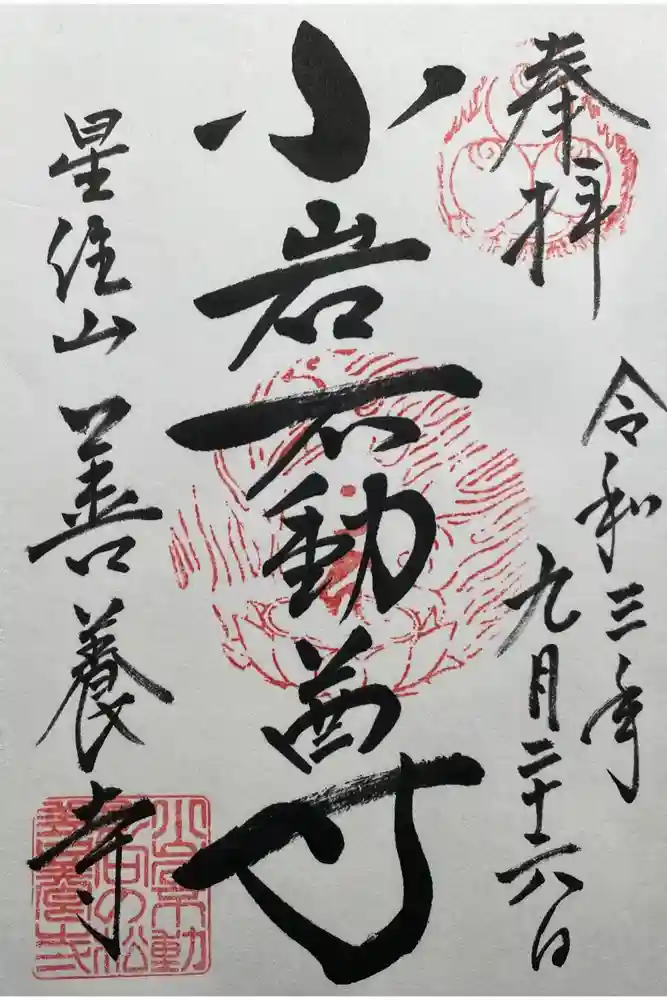 奉拝
令和三年
九月二十六日
小岩不動尊
星住山 善養寺
小岩不動
影向の松
善養寺